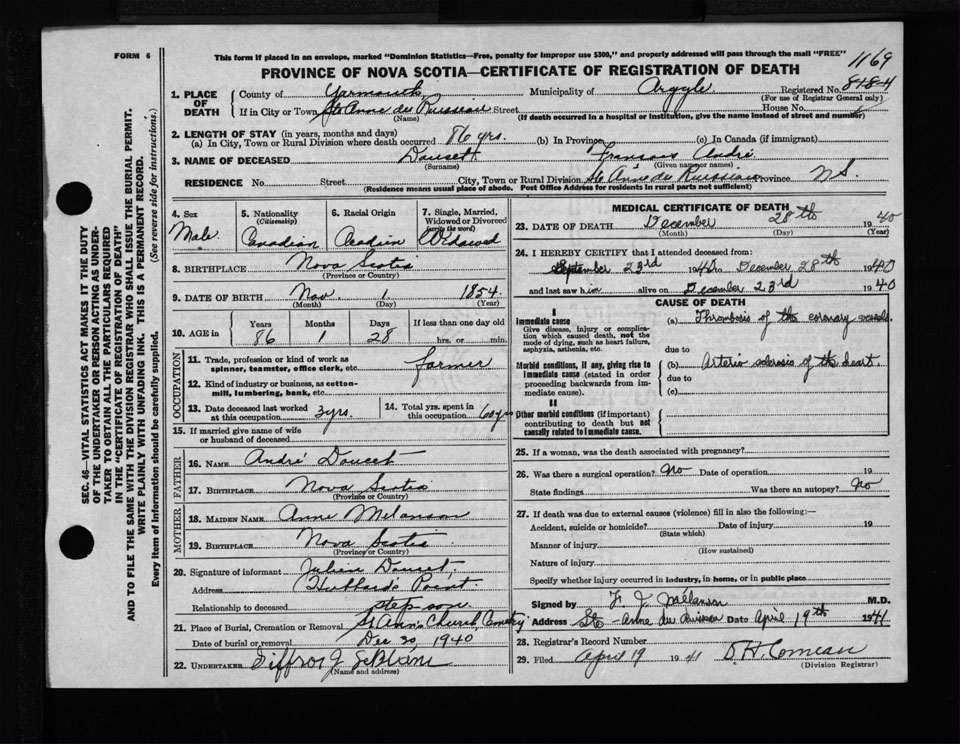 FORM 6
This form if placed in an envelope, marked "Dominion Statistics—Free, penalty for improper use $300," and properly addressed will pass through the mail "FREE"
1169
PROVINCE OF NOVA SCOTIA—CERTIFICATE OF REGISTRATION OF DEATH
1. PLACE OF DEATH County of Yarmouth Municipality of Argyle Registered No. 8484
(For use of Registrar General only)
If in City or Town Ste Anne du Ruisseau Street House No.
(Name) (If death occurred in a hospital or institution, give the name instead of street and number)
2. LENGTH OF STAY (in years, months and days)
(a) In City, Town or Rural Division where death occurred 86 yrs. (b) In Province (c) In Canada (if immigrant)
3. NAME OF DECEASED Doucet François André
(Surname) (Given name or names)
RESIDENCE No. Street City, Town or Rural Division Ste Anne du Ruisseau Province N.S.
(Residence means usual place of abode. Post Office Address for residents in rural parts not sufficient)
4. Sex Male
5. Nationality (Citizenship) Canadian
6. Racial Origin Acadian
7. Single, Married, Widowed or Divorced (write the word) Widowed
8. BIRTHPLACE Nova Scotia
(Province or Country)
9. DATE OF BIRTH Nov. 1 1854
(Month) (Day) (Year)
10. AGE in Years 86 Months 1 Days 28 If less than one day old hrs. or min.
OCCUPATION
11. Trade, profession or kind of work as spinner, teamster, office clerk, etc. farmer
12. Kind of industry or business, as cotton-mill, lumbering, bank, etc.
13. Date deceased last worked at this occupation 3 yrs.
14. Total yrs. spent in this occupation 60 yrs
15. If married give name of wife or husband of deceased
FATHER
16. NAME André Doucet
17. BIRTHPLACE Nova Scotia
(Province or Country)
MOTHER
18. MAIDEN NAME Anne Melanson
19. BIRTHPLACE Nova Scotia
(Province or Country)
20. Signature of informant Julien Doucet
Address Hubbard's Point
Relationship to deceased step-son
21. Place of Burial, Cremation or Removal St Ann's Church Cemetry
Date of burial or removal Dec 30, 1940
22. UNDERTAKER J LeBlanc
(Name and address)
MEDICAL CERTIFICATE OF DEATH
23. DATE OF DEATH December 28th 1940
(Month) (Day) (Year)
24. I HEREBY CERTIFY that I attended deceased from:
September 23rd 1940 to December 28th 1940
and last saw him alive on December 23rd 1940
CAUSE OF DEATH
I
Immediate cause
Give disease, injury or complication which caused death, not the mode of dying, such as heart failure, asphyxia, asthenia, etc.
(a) Thrombosis of the coronary vessels
due to
Morbid conditions, if any, giving rise to immediate cause (stated in order proceeding backwards from immediate cause).
(b) Arterio sclerosis of the heart
due to
(c)
II
Other morbid conditions (if important) contributing to death but not causally related to immediate cause.
25. If a woman, was the death associated with pregnancy?
26. Was there a surgical operation? No Date of operation 19
State findings Was there an autopsy? No
27. If death was due to external causes (violence) fill in also the following:—
Accident, suicide or homicide? Date of injury 19
(State which)
Manner of injury
(How sustained)
Nature of injury
Specify whether injury occurred in industry, in home, or in public place
Signed by F. J. Melanson M.D.
Address Ste-Anne du Ruisseau Date April 19th 1941
28. Registrar's Record Number
29. Filed April 19 1941 D. H. Comeau
(Division Registrar)
SEC. 46—VITAL STATISTICS ACT MAKES IT THE DUTY
OF THE UNDERTAKER OR PERSON ACTING AS UNDER-
TAKER TO OBTAIN ALL THE PARTICULARS REQUIRED
IN THE "CERTIFICATE OF REGISTRATION OF DEATH"
AND TO FILE THE SAME WITH THE DIVISION REGISTRAR WHO SHALL ISSUE THE BURIAL PERMIT.
WRITE PLAINLY WITH UNFADING INK. THIS IS A PERMANENT RECORD.
Every item of information should be carefully supplied. (See reverse side for instructions.)